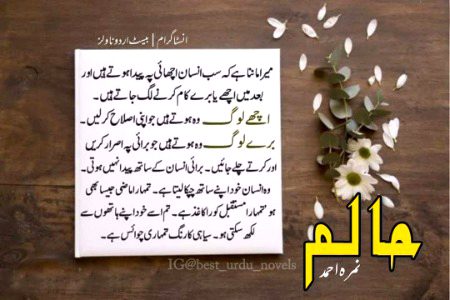 انسٹاگرام | بیسٹ اردو ناولز
میرا ماننا ہے کہ سب انسان اچھائی پہ پیدا ہوتے ہیں اور
بعد میں اچھے یا برے کام کرنے لگ جاتے ہیں۔
اچھے لوگ وہ ہوتے ہیں جو اپنی اصلاح کر لیں۔
برے لوگ وہ ہوتے ہیں جو برائی پہ اصرار کریں
اور کرتے چلے جائیں۔ برائی انسان کے ساتھ پیدا نہیں ہوتی۔
وہ انسان خود اپنے ساتھ چپکا لیتا ہے۔ تمہارا ماضی جیسا بھی
ہو، تمہارا مستقبل کورا کاغذ ہے۔ تم اسے خود اپنے ہاتھوں سے
لکھ سکتی ہو۔ سیاہی کا رنگ تمہاری چوائس ہے۔
IG@best_urdu_novels
حالم
نمرہ احمد